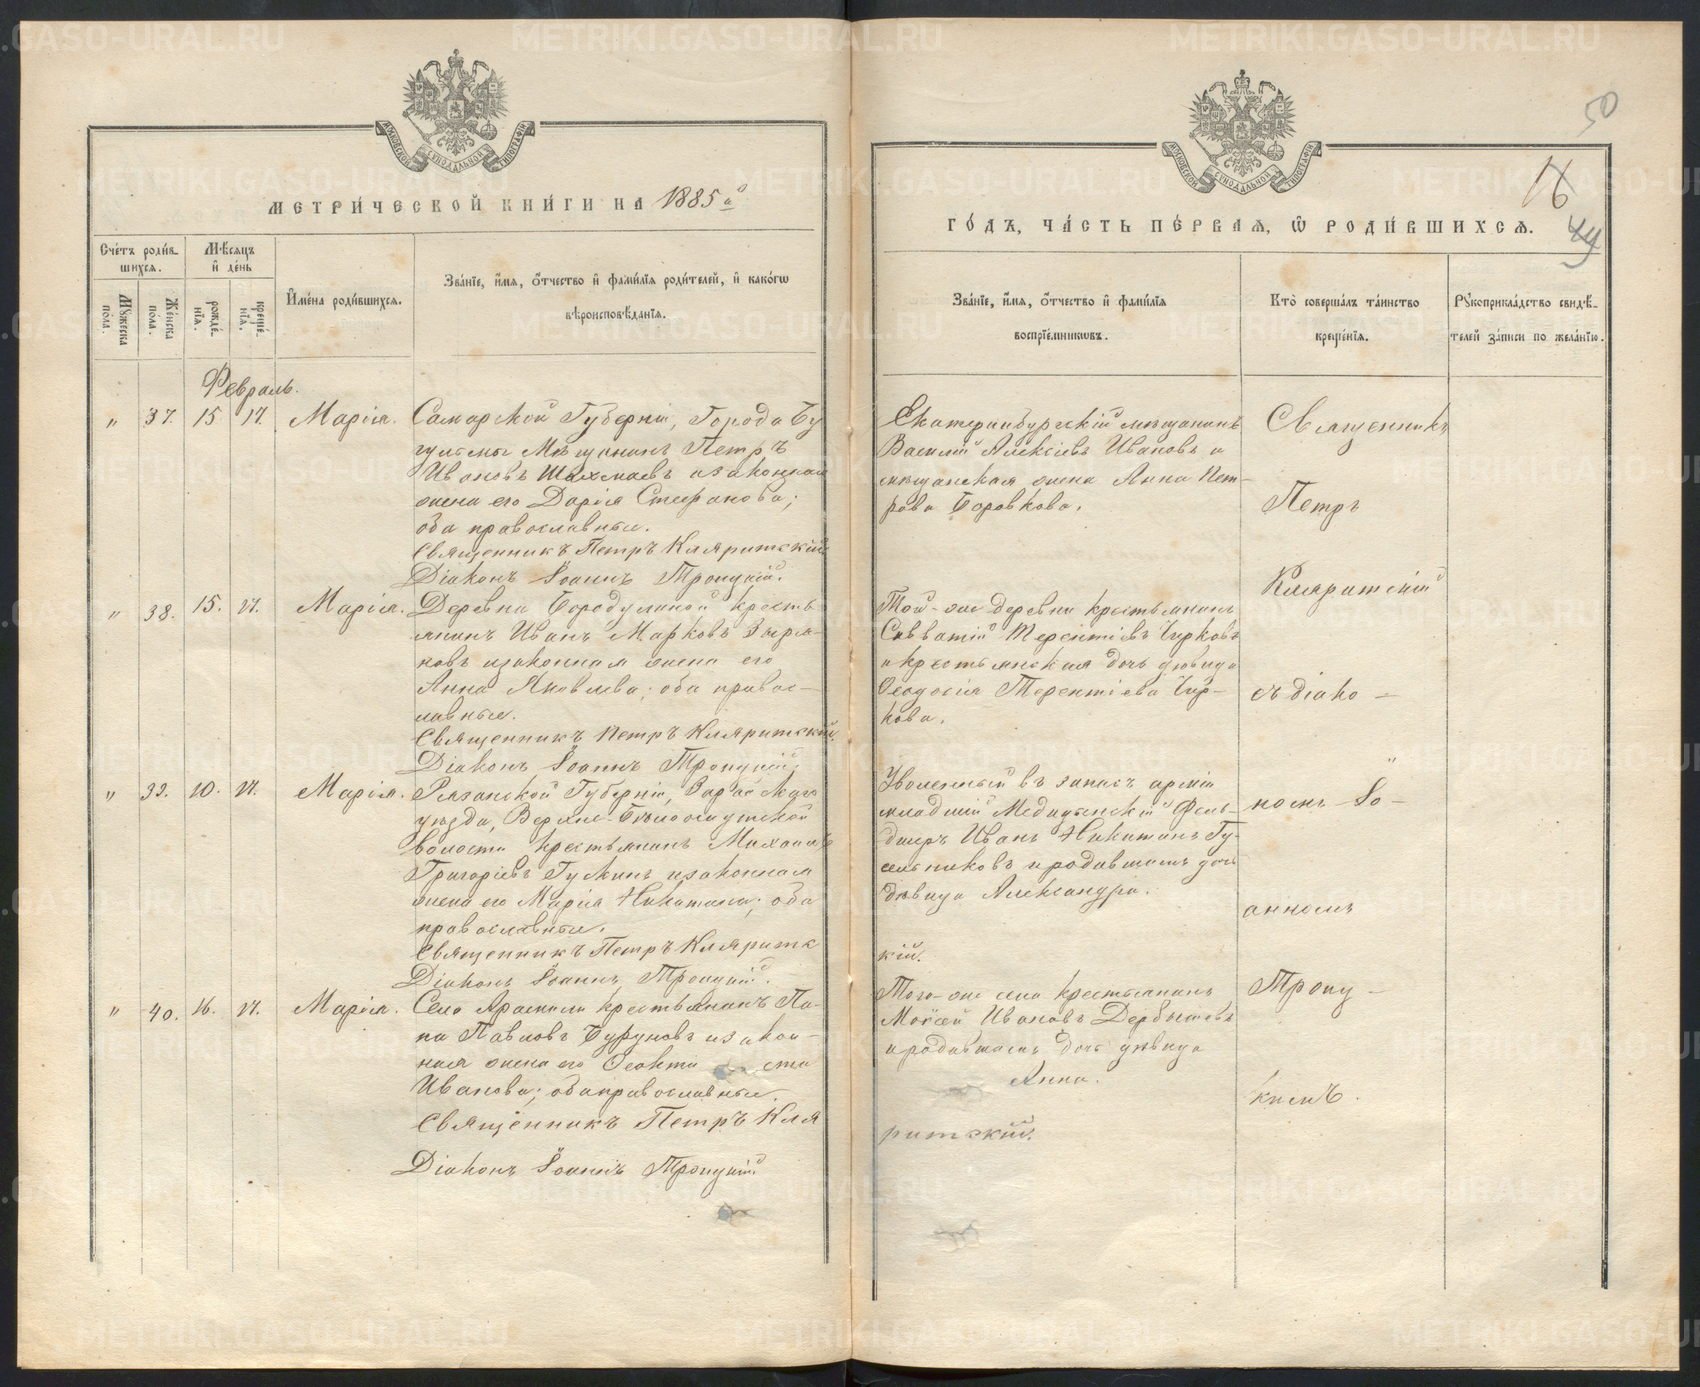 МЕТРИ́ЧЕСКОЙ КНИ́ГИ НА 1885 й
Сче́тъ роди́в-
шихся.
Мѣ́сяцъ
и҆ де́нь
Мꙋжеска
пола.
Же́нска
пола.
рожде́-
нїѧ.
креще́-
нїѧ.
И҆мена̀ роди́вшихсѧ.
Зва́нїе, и҆́мѧ, ѻ҆́тчество и҆ фамѝлїѧ роди́телей, и҆ како́гѡ
вѣроисповѣ́данїѧ.
Февраль.
" 37. 15 17. Марія.
Самарской Губерніи, Города Бу
гульмы Мѣщанинъ Петръ
Ивановъ Шахмаевъ и законная
жена его Дарія Стефанова;
оба православные.
Священникъ Петръ Кляритскій
Діаконъ Іоаннъ Троицкій.
" 38. 15. 17. Марія.
Деревни Бородулиной кресть
янинъ Иванъ Марковъ Зыря-
новъ и законная жена его
Анна Яковлева; оба правос-
лавные.
Священникъ Петръ Кляритскій.
Діаконъ Іоаннъ Троицкій.
" 39. 10. 17. Марія.
Рязанской Губерніи, Зарайскаго
уѣзда, Верхне-Бѣлоомутской
волости крестьянинъ Михаилъ
Григоріевъ Гускинъ и законная
жена его Марія Никитина; оба
православные.
Священникъ Петръ Кляритс
Діаконъ Іоаннъ Троицкій.
" 40. 16. 17. Марія.
Села Арамили крестьянинъ Па-
па Павловъ Буруновъ и закон-
ная жена его Ѳеокти ста
Иванова; оба православные.
Священникъ Петръ Кля
Діаконъ Іоаннъ Троицкій
50
16
49
ГО́ДЪ, ЧА́СТЬ ПЕ́РВАѦ, Ѡ҆ РОДИ́ВШИХСѦ.
Зва́нїе, и҆́мѧ, ѻ҆́тчество и҆ фамѝлїѧ
воспрїе́мникѡвъ.
Кто̀ соверша́лъ та́инство
креще́нїѧ.
Рꙋкоприкла́дство свидѣ́-
телей за́писи по жела́нїю.
Екатеринбургскій мѣщанинъ
Василій Алексіевъ Ивановъ и
мѣщанская жена Анна Пет-
рова Боровкова.
Той-же деревни крестьянинъ
Савватій Терентіевъ Чирковъ
и крестьянская дочь дѣвица
Ѳеодосія Терентіева Чир-
кова.
Уволенный въ запасъ арміи
младшій Медицинскій Фель-
дшеръ Иванъ Никитинъ Гу-
сельниковъ и родившаяся дочь
дѣвица Александра.
кій.
Того-же села крестьянинъ
Моѵсей Ивановъ Дербышевъ
и родившаяся дочь дѣвица
Анна.
ритскій.
Священникъ
Петръ
Кляритскій
съ діако-
номъ Іо-
анномъ
Троиц-
кимъ.
METRIKI.GASO-URAL.RU